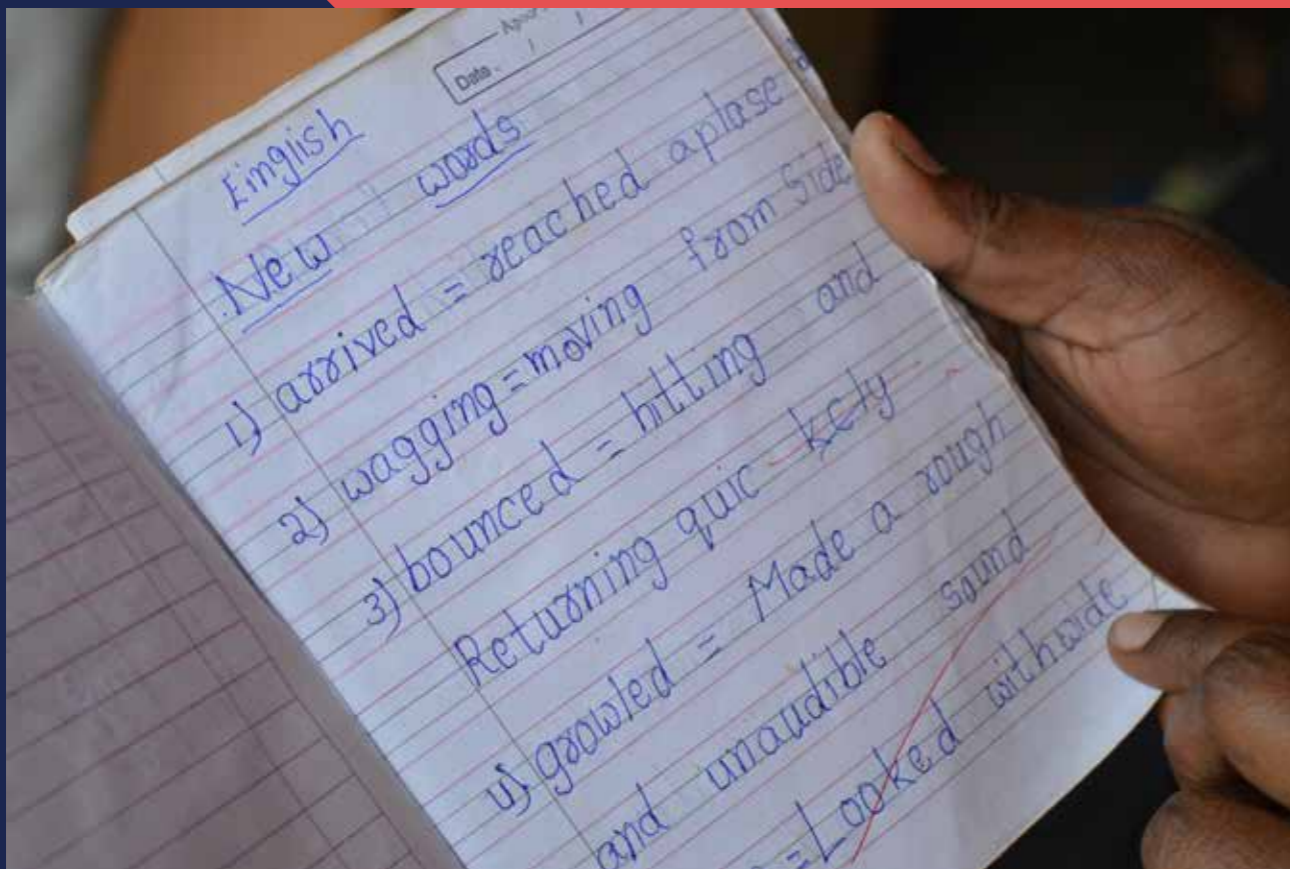 Date.
Eingiish
New words
1) arrived = reached aplase
2) wagging = moving from Side
3) bounced = hitting and
Returning quic - kcly
4) growled = Made a rough
and unaudible sound
= Looked with wide